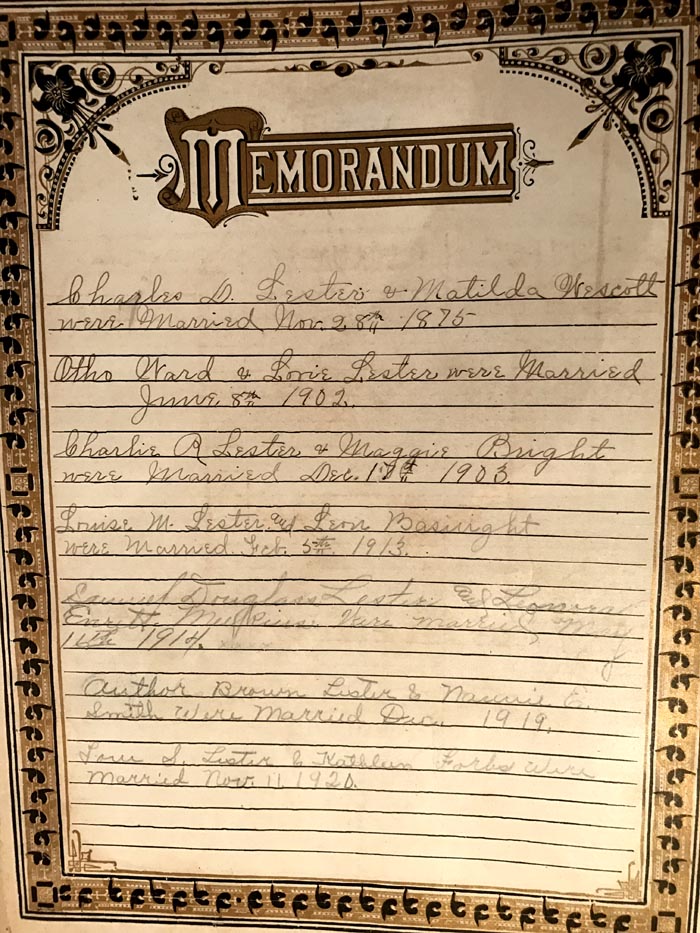 MEMORANDUM
Charles D. Lester & Matilda Wescott
were Married Nov. 28th 1875
Otho Ward & Lovie Lester were Married
June 8th 1902.
Charlie R Lester & Maggie Bright
were Married Dec. 17th 1903.
Louise M. Lester and Leon Basnight
were Married Feb. 5th 1913.
Samuel Douglass Lester and Leonora
Married May
11th 1914.
Author Brown Lester & Nannie E.
Smith Were Married Dec. 1919.
S. Lester & Kathleen Forbs were
Married Nov. 11, 1920.